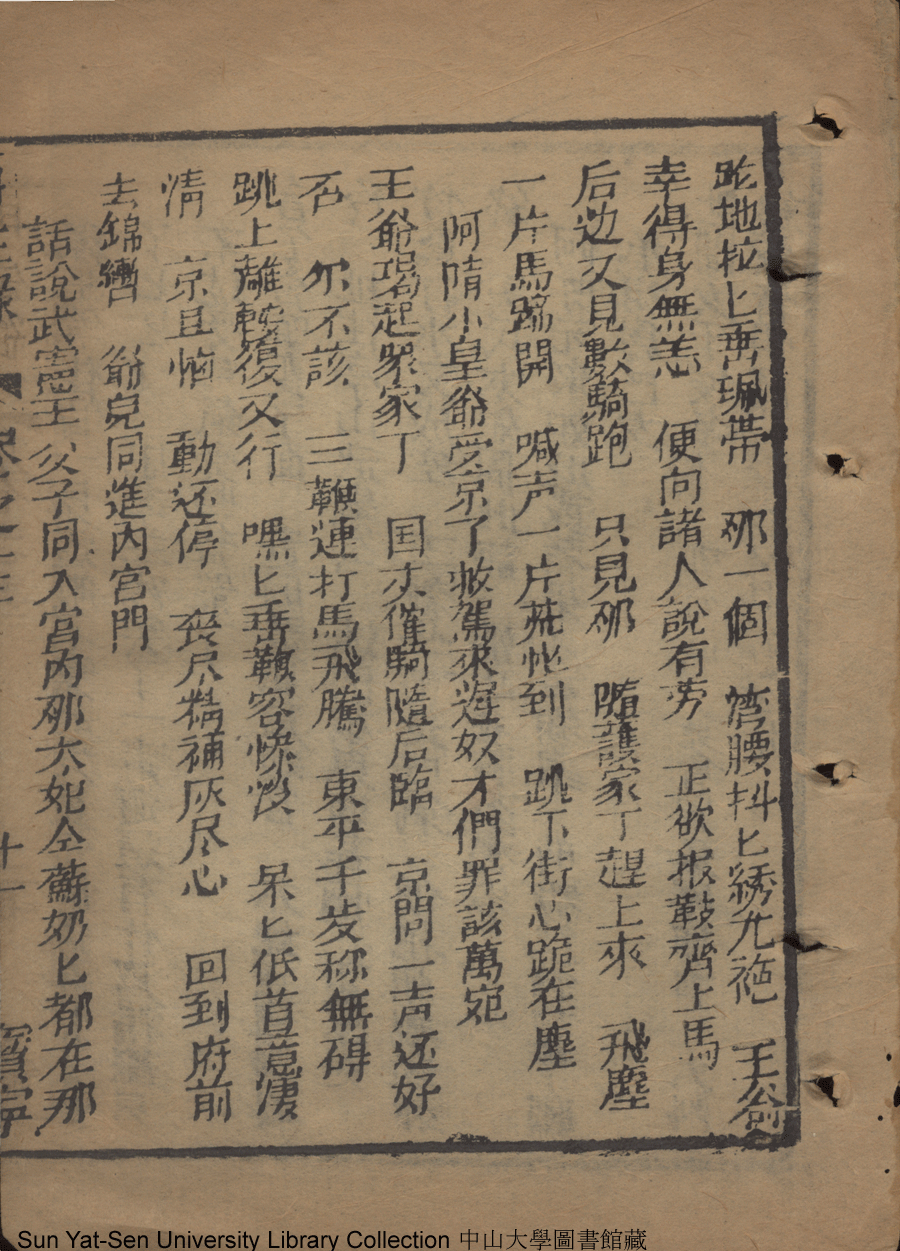 跎地拉匕垂珮帶 那一個 彎腰抖匕綉尤袍 王爺
幸得身無恙 便向諸人說有劳 正欲报鞍齊上馬
后边又見數騎跑 只見那 隨護家丁趕上來 飛塵
一片馬蹄開 喊声一片茫忙到 跳下街心跪在塵
阿隋小皇爺受京了救駕來遲奴才們罪該萬死
王爺喝起眾家丁 因木催騎隨后臨 京問一声还好
否 尔不該 三鞭連打馬飛騰 東平千歩称無碍
跳上離鞍復又行 嘿匕垂鞭容惨悽 呆匕低首意凄
清 京且恼 動还停 丧尽精補灰尽心 回到府前
去錦轡 爺兒同進內宮門
話說武憲王父子同入宮內那太妃仝蘇奶匕都在那
十一
賓寧
Sun Yat-Sen University Library Collection 中山大學圖書館藏